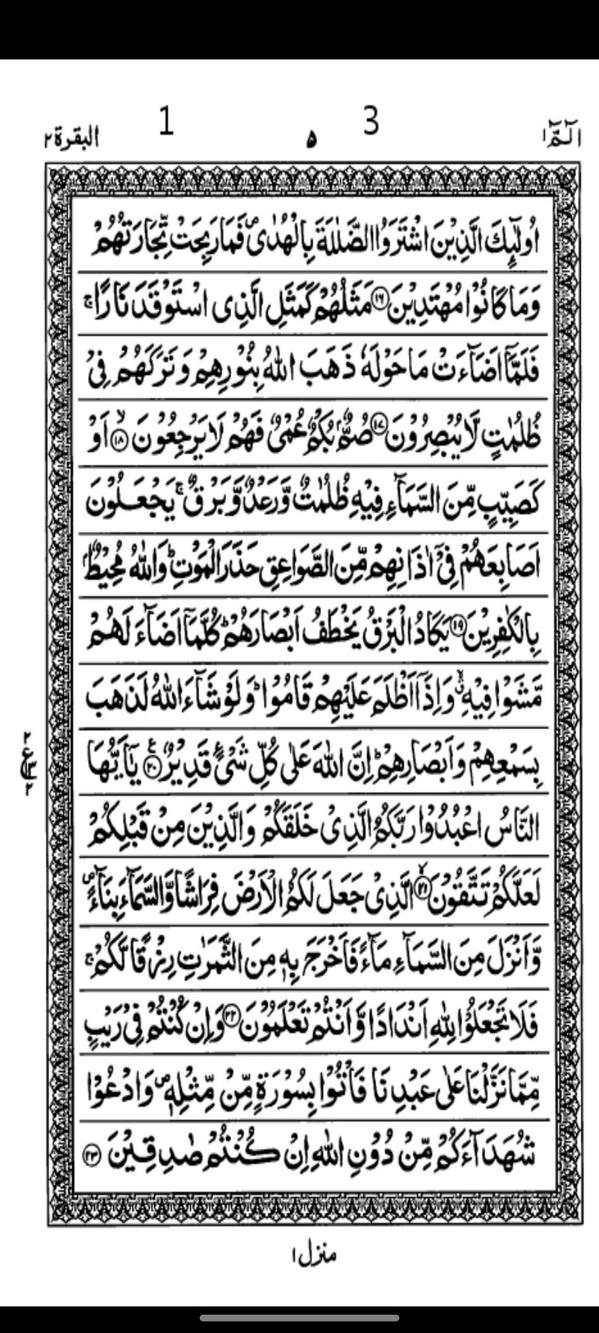 الٓمّٓ ١ 3 ٥ 1 البقرة ٢
اُولٰٓئِكَ الَّذِيْنَ اشْتَرَوُا الضَّلٰلَةَ بِالْهُدٰى ۪ فَمَا رَبِحَتْ تِّجَارَتُهُمْ
وَمَا كَانُوْا مُهْتَدِيْنَ ﴿١٦﴾ مَثَلُهُمْ كَمَثَلِ الَّذِى اسْتَوْقَدَ نَارًا ۚ
فَلَمَّاۤ اَضَآءَتْ مَا حَوْلَهٗ ذَهَبَ اللّٰهُ بِنُوْرِهِمْ وَتَرَكَهُمْ فِىْ
ظُلُمٰتٍ لَّا يُبْصِرُوْنَ ﴿١٧﴾ صُمٌّۢ بُكْمٌ عُمْىٌ فَهُمْ لَا يَرْجِعُوْنَ ۙ﴿١٨﴾ اَوْ
كَصَيِّبٍ مِّنَ السَّمَآءِ فِيْهِ ظُلُمٰتٌ وَّرَعْدٌ وَّبَرْقٌ ۚ يَجْعَلُوْنَ
اَصَابِعَهُمْ فِىْۤ اٰذَانِهِمْ مِّنَ الصَّوَاعِقِ حَذَرَ الْمَوْتِ ؕ وَاللّٰهُ مُحِيْطٌۢ
بِالْكٰفِرِيْنَ ﴿١٩﴾ يَكَادُ الْبَرْقُ يَخْطَفُ اَبْصَارَهُمْ ؕ كُلَّمَاۤ اَضَآءَ لَهُمْ
مَّشَوْا فِيْهِ ۙۗ وَاِذَاۤ اَظْلَمَ عَلَيْهِمْ قَامُوْا ؕ وَلَوْ شَآءَ اللّٰهُ لَذَهَبَ
بِسَمْعِهِمْ وَاَبْصَارِهِمْ ؕ اِنَّ اللّٰهَ عَلٰى كُلِّ شَىْءٍ قَدِيْرٌ ﴿٢٠﴾ يٰۤاَيُّهَا
٢ ع ٣ ٢
النَّاسُ اعْبُدُوْا رَبَّكُمُ الَّذِىْ خَلَقَكُمْ وَالَّذِيْنَ مِنْ قَبْلِكُمْ
لَعَلَّكُمْ تَتَّقُوْنَ ۙ﴿٢١﴾ الَّذِىْ جَعَلَ لَكُمُ الْاَرْضَ فِرَاشًا وَّالسَّمَآءَ بِنَآءً ۪
وَّاَنْزَلَ مِنَ السَّمَآءِ مَآءً فَاَخْرَجَ بِهٖ مِنَ الثَّمَرٰتِ رِزْقًا لَّكُمْ ۚ
فَلَا تَجْعَلُوْا لِلّٰهِ اَنْدَادًا وَّاَنْتُمْ تَعْلَمُوْنَ ﴿٢٢﴾ وَاِنْ كُنْتُمْ فِىْ رَيْبٍ
مِّمَّا نَزَّلْنَا عَلٰى عَبْدِنَا فَاْتُوْا بِسُوْرَةٍ مِّنْ مِّثْلِهٖ ۪ وَادْعُوْا
شُهَدَآءَكُمْ مِّنْ دُوْنِ اللّٰهِ اِنْ كُنْتُمْ صٰدِقِيْنَ ﴿٢٣﴾
منزل ١